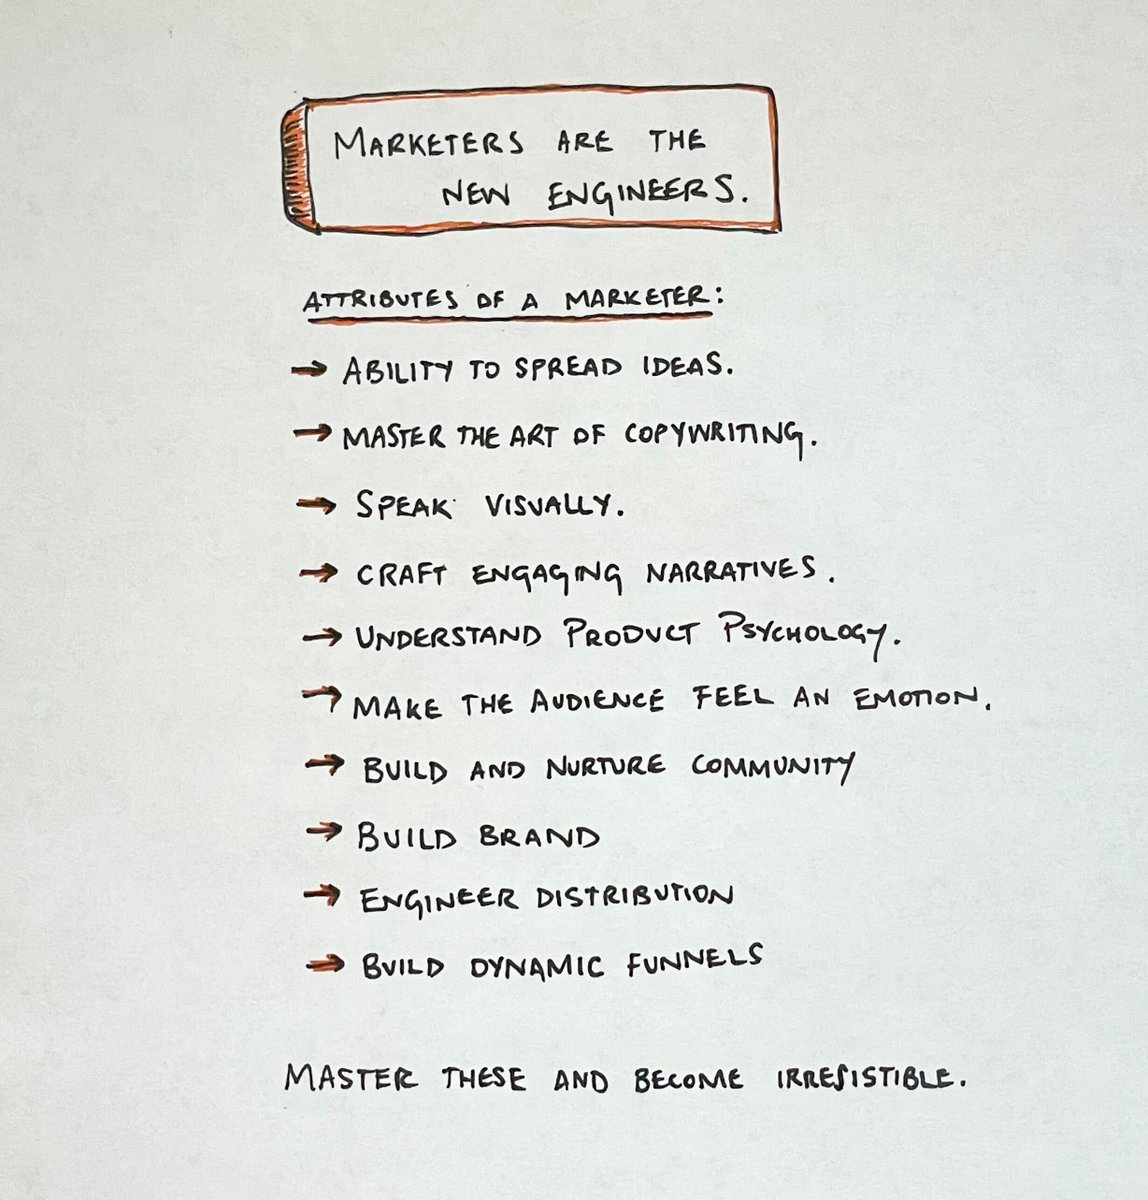 MARKETERS ARE THE
NEW ENGINEERS.
ATTRIBUTES OF A MARKETER:
→ ABILITY TO SPREAD IDEAS.
→ MASTER THE ART OF COPYWRITING.
→ SPEAK VISUALLY.
→ CRAFT ENGAGING NARRATIVES.
→ UNDERSTAND PRODUCT PSYCHOLOGY.
→ MAKE THE AUDIENCE FEEL AN EMOTION.
→ BUILD AND NURTURE COMMUNITY
→ BUILD BRAND
→ ENGINEER DISTRIBUTION
→ BUILD DYNAMIC FUNNELS
MASTER THESE AND BECOME IRRESISTIBLE.